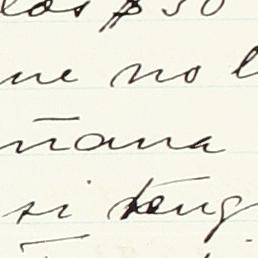 los $ 50
ue no l
ñana
si teng